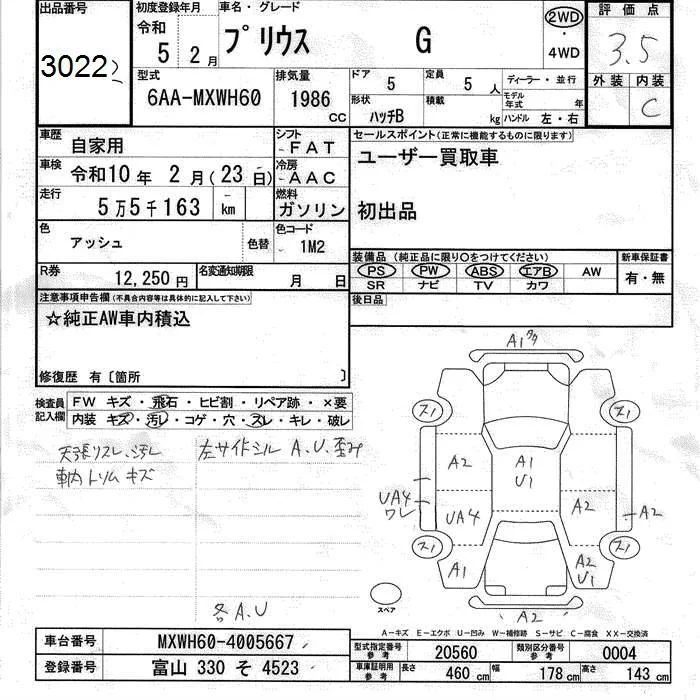 出品番号
3022
初度登録年月
令和
5 2月
車名・グレード
プリウス G
2WD
・
4WD
評価点
3.5
外装 内装
C
型式
6AA-MXWH60
排気量
1986
CC
ドア 5
定員 5 人
ディーラー・並行
形状
ハッチB
積載 kg
モデル年式 年
ハンドル 左・右
車歴
自家用
シフト
FAT
車検
令和10年 2月(23日)
冷房
AAC
走行
5万5千163 km
燃料
ガソリン
セールスポイント(正常に機能するものに限ります)
ユーザー買取車
初出品
色
アッシュ
色替
色コード
1M2
装備品(純正品に限り○をつけてください)
新車保証書
PS PW ABS エアB AW
SR ナビ TV カワ
有・無
R券
12,250円
名変通知期限
月 日
後日品
注意事項申告欄(不具合内容等は具体的に記入して下さい)
☆純正AW車内積込
修復歴 有〔箇所 〕
検査員記入欄
FW キズ・飛石・ヒビ割・リペア跡・×要
内装 キズ・汚レ・コゲ・穴・スレ・キレ・破レ
天張リスレ、汚レ
車内トリム キズ
左サイドシル A.U.歪み
各A.U
A1
A2
A1
U1
A2
UA4
ワレ
UA4
A2
A2
A1
A2
U1
A2
スペア
A-キズ E-エクボ U-凹み W-補修跡 S-サビ C-腐食 XX-交換済
車台番号
MXWH60-4005667
登録番号
富山 330 そ 4523
型式指定番号
参考
20560
類別区分番号
参考
0004
車庫証明用
参考
長さ 460 cm
幅 178 cm
高さ 143 cm